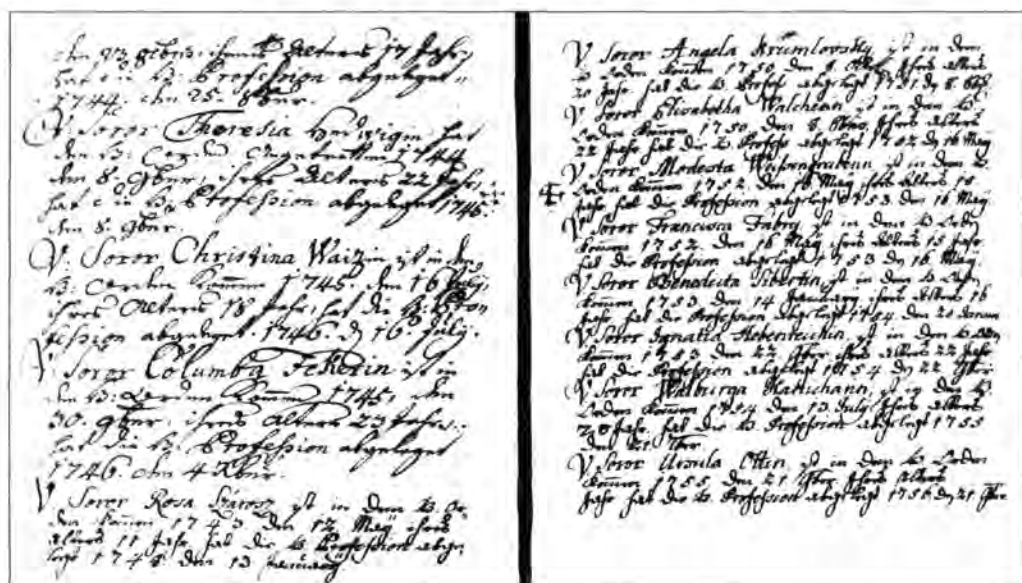 den 23 9bris, ihres Alters 17 Jahr,
hat die H: Profession abgeleget
1744. den 25. 9ber.
V. Soror Theresia Hedwigin hat
den H: Orden Angetretten 1744
den 8. 9ber, ihres Alters 22 Jahr,
hat die H: Profession abgeleget 1745.
den 8. 9ber.
V. Soror Christina Waizin ist in den
H: Orden Kommen 1745. den 16 July,
ihres Alters 18 Jahr, hat die H: Pro
fession abgeleget. 1746. d 16 July.
V. Soror Columba Fekerin ist in
den H: Orden Kommen 1745, den
30. 9ber, ihres Alters 23 Jahr,
hat die H: Profession abgeleget
1746. den 4 Xber.
V Soror Rosa ist in dem H. Or
den kommen 1743, den 12 May ihres
Alters 11 Jahr, hat die H. Profession abge
legt 1748 den 13 January
V Soror Angela Krumlovsky ist in dem
H Orden kommen 1750, den 8. ihres Alters
20 Jahr, hat die H. Profess abgelegt 1751 d 8.
V Soror Elisabetha ist in dem H.
Orden kommen 1750, den 8. ihres Alters
22 Jahr hat die H. Profess abgelegt 1752 d 16 May
V Soror Modesta ist in dem H.
Orden kommen 1752. den 16 May ihres Alters 18
Jahr hat die Profession abgelegt 1753 den 16 May.
V Soror Francisca Fabry ist in dem H Orden
kommen 1752. den 16 May ihres Alters 15 Jahr.
hat die Profession abgelegt 1753 d 16 May.
V Soror Benedicta ist in dem H Orden
kommen 1753 den 14 January ihres Alters 16
Jahr hat die Profession abgelegt 1754. den
V Soror Ignatia ist in dem H. Orden
kommen 1753 den 22 ihres Alters 22 Jahr
hat die Profession abgelegt 1754 d 22
V Soror Walburga ist in dem H
Orden kommen 1754 den 13 July ihres Alters
Jahr hat die H Profession abgelegt 1755
den 21
V Soror Ursula Ottin, ist in dem H Orden
kommen 1755, den 21 ihres Alters
Jahr hat die H. Profession abgelegt 1756 d 21